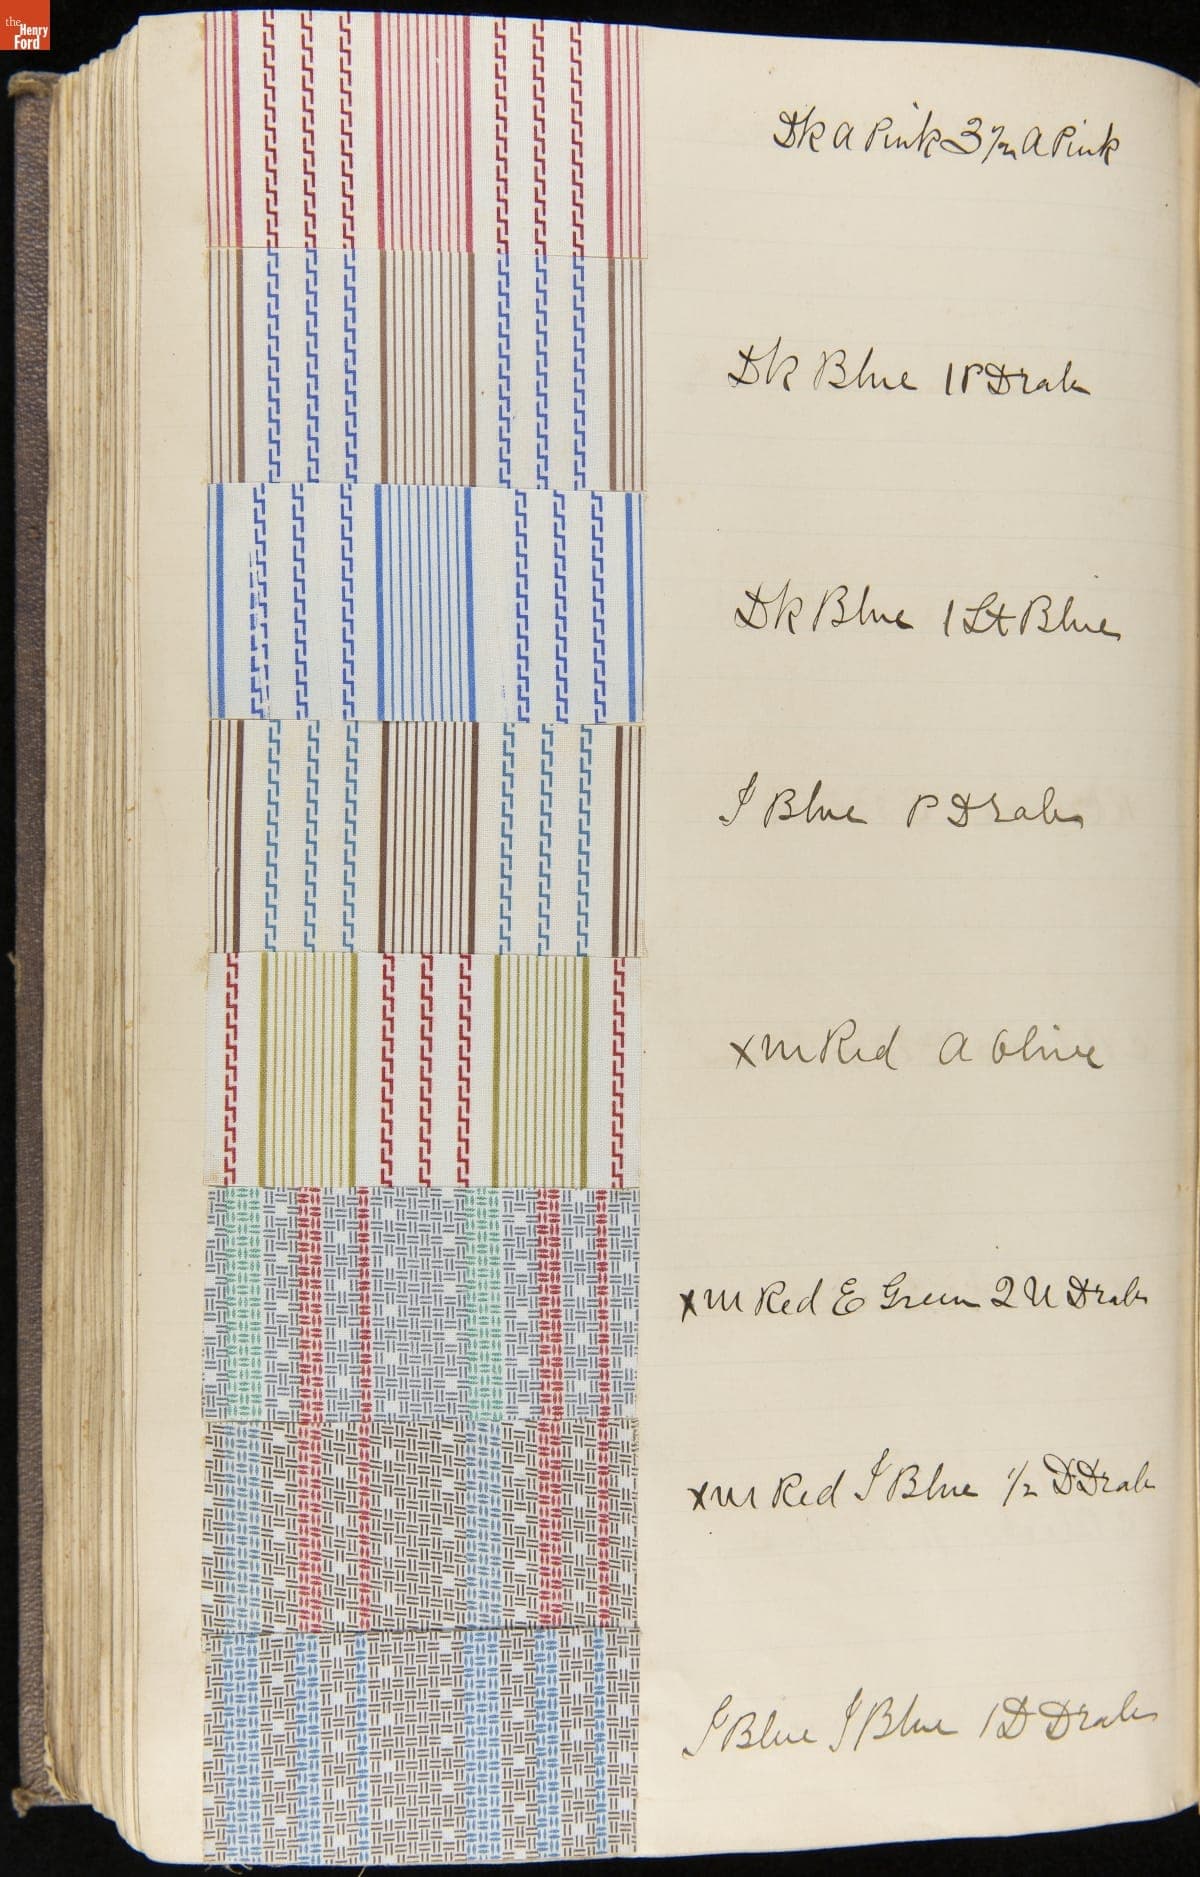 the
Henry
Ford
Dk A Pink 3 1/2 A Pink
Dk Blue 1 P Drab
Dk Blue 1 Lt Blue
I Blue P Drab
x m Red A Olive
x m Red E Green 2 N Drab
x m Red I Blue 1/2 D Drab
I Blue I Blue 1 D Drab